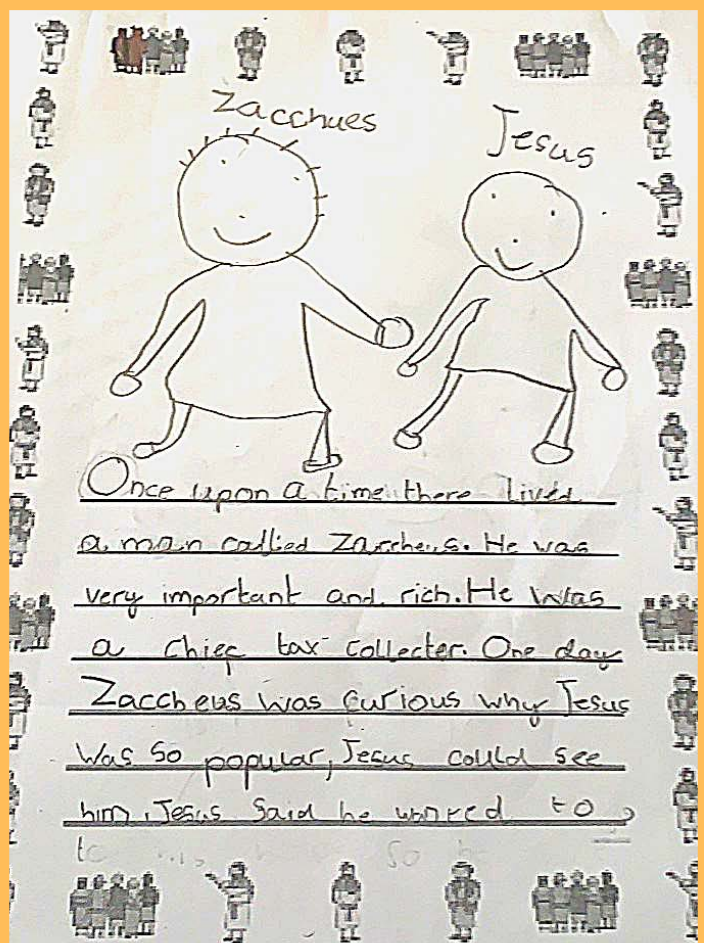 Zacchues
Jesus
Once upon a time there lived
a man called Zaccheus. He was
very important and rich. He was
a chief tax collecter. One day
Zaccheus was curious why Jesus
was so popular, Jesus could see
him. Jesus said he wanted to
to so